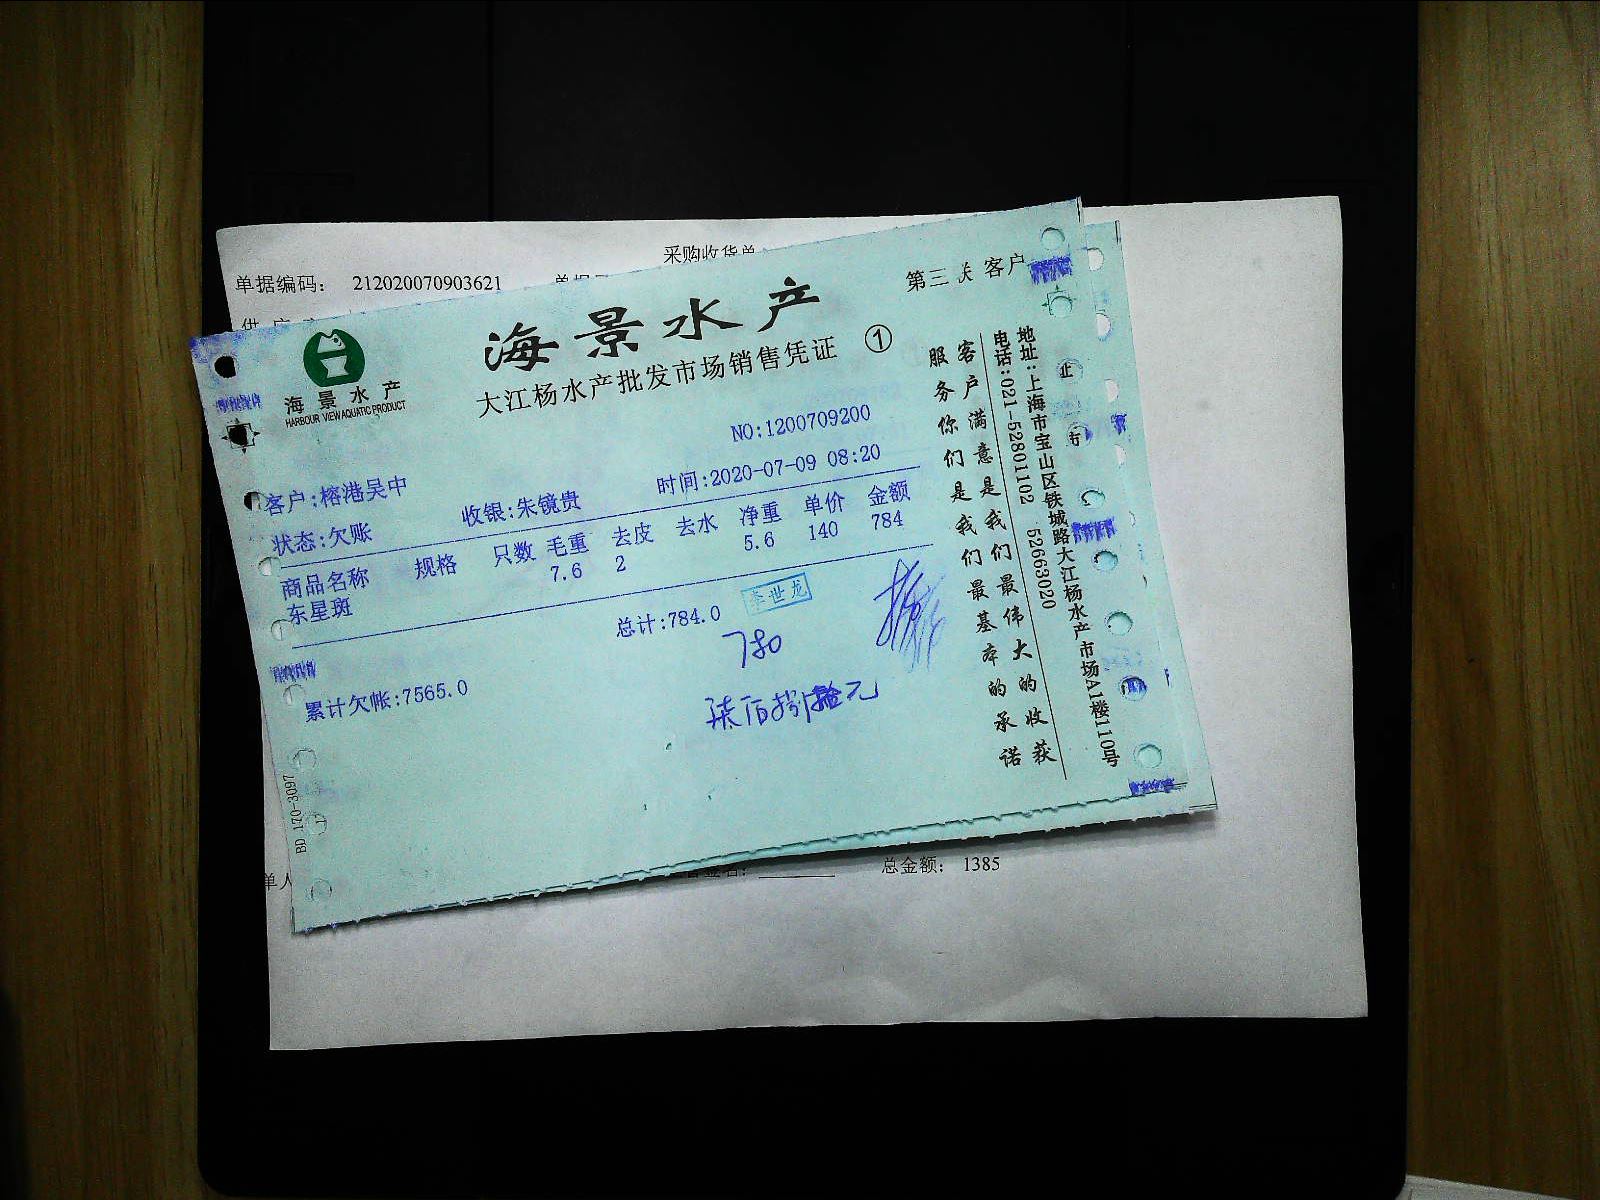 采购收货单
单据编码： 212020070903621
第三联 客户
海景水产
大江杨水产批发市场销售凭证 ①
海景水产
HARBOUR VIEW AQUATIC PRODUCT
NO:1200709200
客户:榕港吴中
收银:朱镜贵
时间:2020-07-09 08:20
状态:欠账
商品名称 规格 只数 毛重 去皮 去水 净重 单价 金额
东星斑 7.6 2 5.6 140 784
总计:784.0
李世龙
780
柒佰捌拾元
累计欠帐:7565.0
客户满意是我们最伟大的收获
服务你们是我们最基本的承诺
地址:上海市宝山区铁城路大江杨水产市场A1楼110号
电话:021-52801102 52663020
BD 170-3097
总金额： 1385